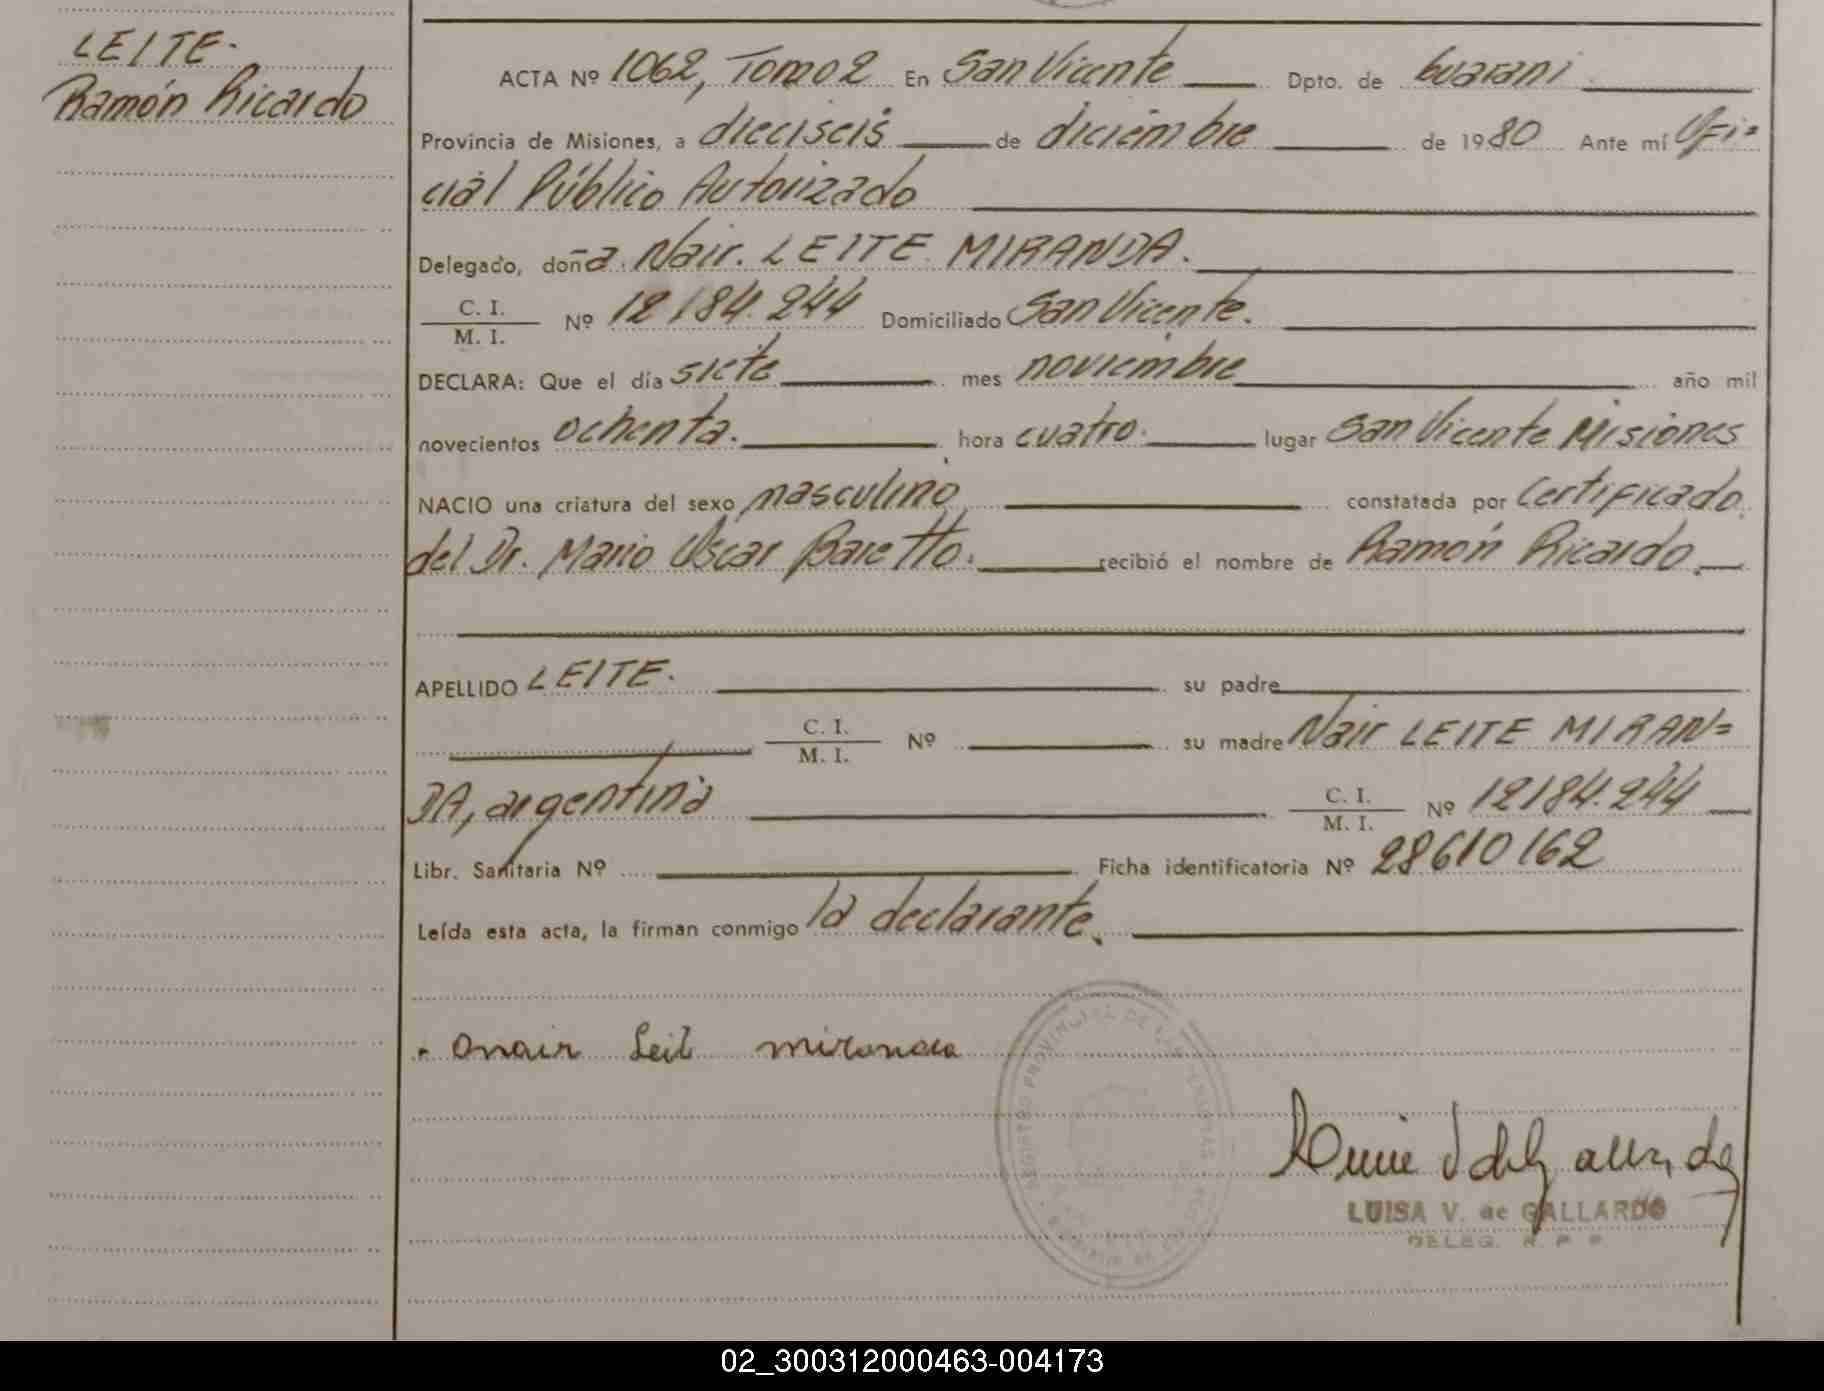 LEITE.
Ramón Ricardo
ACTA Nº 1062, Tomo 2 En San Vicente Dpto. de Guaraní
Provincia de Misiones, a dieciseis de diciembre de 1980 Ante mí Ofi=
cial Público Autorizado
Delegado, doña Nair. LEITE MIRANDA.
C. I.
M. I.
Nº 12184.244 Domiciliado San Vicente.
DECLARA: Que el día siete mes noviembre año mil
novecientos ochenta. hora cuatro. lugar San Vicente Misiones
NACIO una criatura del sexo masculino constatada por Certificado
del Dr. Mario Oscar Baretto. recibió el nombre de Ramón Ricardo.
APELLIDO LEITE. su padre
C. I.
M. I.
Nº su madre Nair LEITE MIRAN=
DA, argentina C. I.
M. I.
Nº 12184.244
Libr. Sanitaria Nº Ficha identificatoria Nº 28610162
Leída esta acta, la firman conmigo la declarante.
onair Leit miranda
REGISTRO PROVINCIAL DE LAS PERSONAS
LUISA V. de GALLARDO
DELEG. R. P. P.
02_300312000463-004173